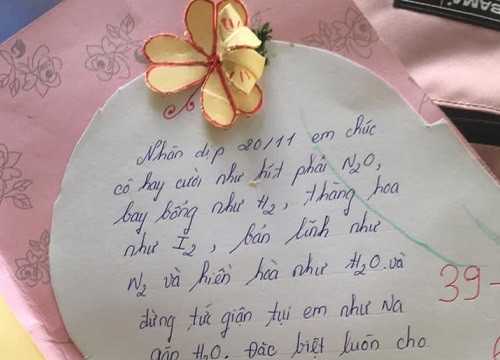 Nhân dịp 20/11 em chúc
cô hay cười như hít phải N₂O,
bay bổng như H₂, thăng hoa
như I₂, bản lĩnh như
N₂ và hiền hoà như H₂O và
đừng tức giận tụi em như Na
gặp H₂O. Đặc biệt luôn cho
39-